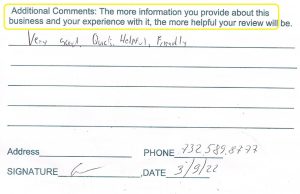 Additional Comments: The more information you provide about this
business and your experience with it, the more helpful your review will be.
Very Good, Quick, Helpful, Friendly
Address
PHONE 732 589.8777
SIGNATURE ,DATE 3/9/22